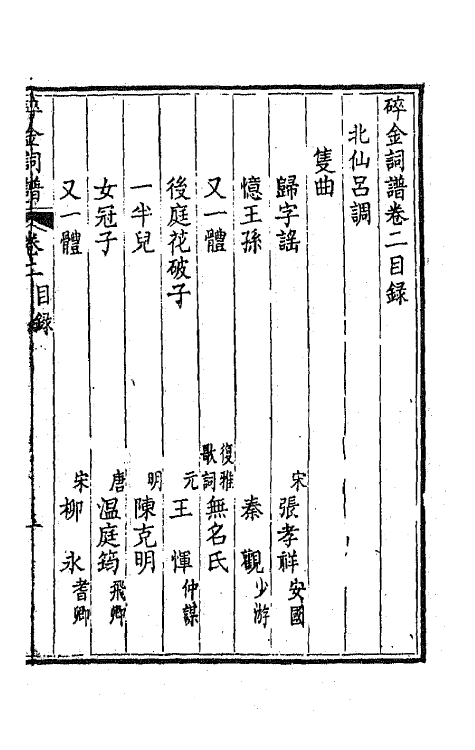 碎金詞譜卷二目録
北仙呂調
隻曲
歸字謠 宋張孝祥安國
憶王孫 秦觀少游
又一體 復雅歌詞無名氏
後庭花破子 元王惲仲謀
一半兒 明陳克明
女冠子 唐溫庭筠飛卿
又一體 宋柳永耆卿
碎金詞譜 卷二目録 一